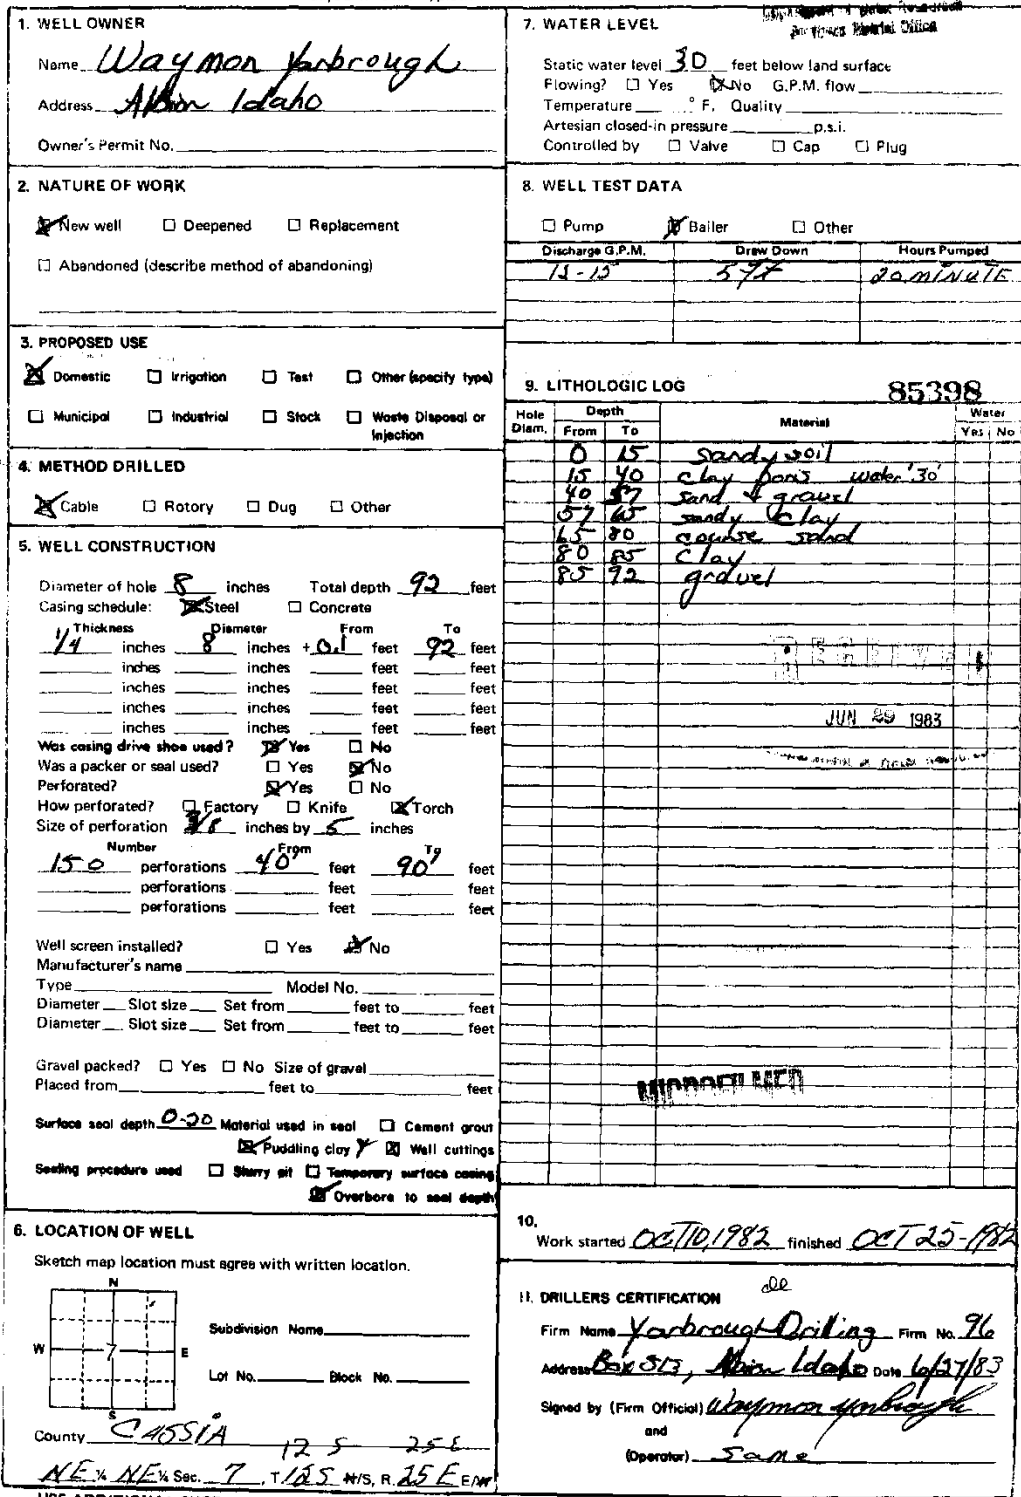 1. WELL OWNER
Name Waymon Yarbrough
Address Albion Idaho
Owner's Permit No.
2. NATURE OF WORK
New well Deepened Replacement
Abandoned (describe method of abandoning)
3. PROPOSED USE
Domestic Irrigation Test Other (specify type)
Municipal Industrial Stock Waste Disposal or
Injection
4. METHOD DRILLED
Cable Rotory Dug Other
5. WELL CONSTRUCTION
Diameter of hole 8 inches Total depth 92 feet
Casing schedule: Steel Concrete
Thickness Diameter From To
1/4 inches 8 inches + 0.1 feet 92 feet
inches inches feet feet
inches inches feet feet
inches inches feet feet
inches inches feet feet
Was casing drive shoe used? Yes No
Was a packer or seal used? Yes No
Perforated? Yes No
How perforated? Factory Knife Torch
Size of perforation 3/8 inches by 5 inches
Number From To
150 perforations 40' feet 90' feet
perforations feet feet
perforations feet feet
Well screen installed? Yes No
Manufacturer's name
Type Model No.
Diameter Slot size Set from feet to feet
Diameter Slot size Set from feet to feet
Gravel packed? Yes No Size of gravel
Placed from feet to feet
Surface seal depth 0-20 Material used in seal Cement grout
Puddling clay Well cuttings
Sealing procedure used Slurry pit Temporary surface casing
Overbore to seal depth
6. LOCATION OF WELL
Sketch map location must agree with written location.
N
W 7 E
S
Subdivision Name
Lot No. Block No.
County CASSIA
12 S 25 E
NE ¼ NE ¼ Sec. 7, T. 12 S N/S, R. 25 E E/W
7. WATER LEVEL
Static water level 30 feet below land surface
Flowing? Yes No G.P.M. flow
Temperature ° F. Quality
Artesian closed-in pressure p.s.i.
Controlled by Valve Cap Plug
8. WELL TEST DATA
Pump Bailer Other
Discharge G.P.M. Draw Down Hours Pumped
12-15 20 minute
9. LITHOLOGIC LOG 85398
Hole Diam. Depth Material Water
From To Yes No
0 15 sandy soil
15 40 clay pans water '30'
40 57 sand + gravel
57 65 sandy clay
65 80 course sand
80 85 clay
85 92 gravel
RECEIVED
JUN 29 1983
MICROFILMED
10.
Work started OCT 10, 1982 finished OCT 25-1982
11. DRILLERS CERTIFICATION
Firm Name Yarbrough Drilling Firm No. 96
Address Box 513, Albion Idaho Date 6/27/83
Signed by (Firm Official) Waymon Yarbrough
and
(Operator) Same